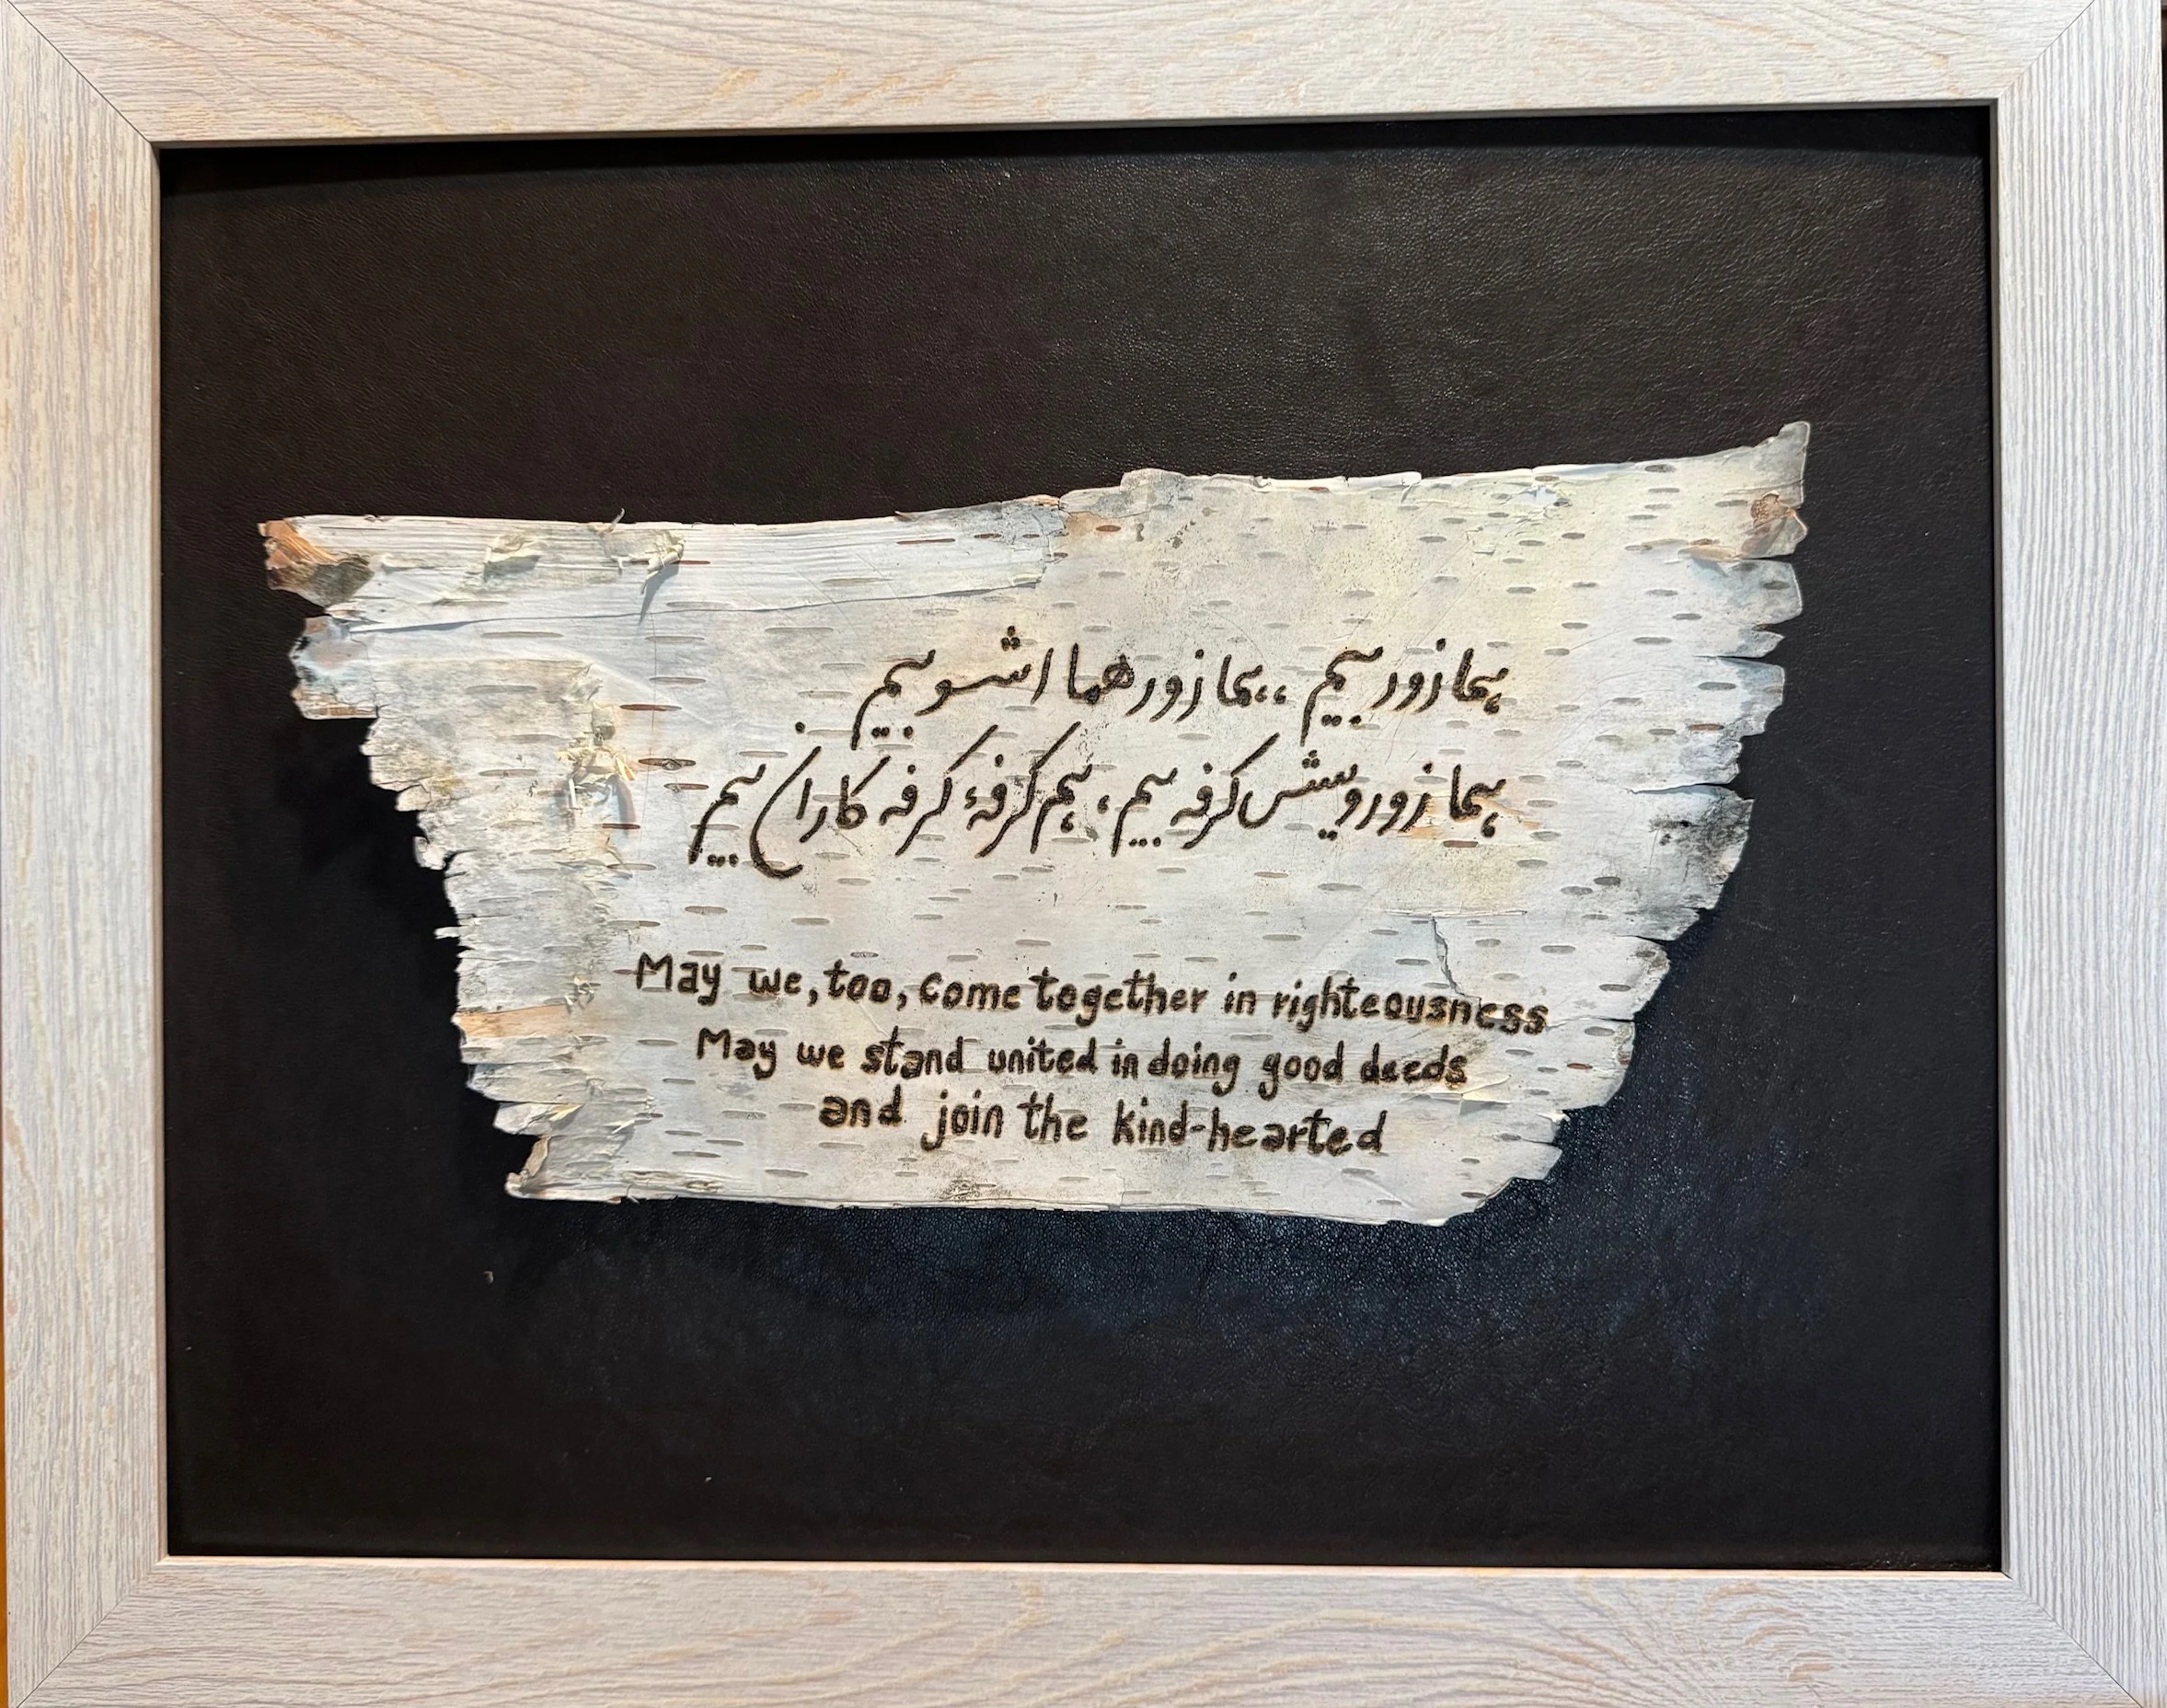 همازور بیم ،، همازور هما اشو بیم
همازور ویشش کرفه بیم ، هم کرفهٔ کرفه کاران بیم
May we, too, come together in righteousness
May we stand united in doing good deeds
and join the kind-hearted